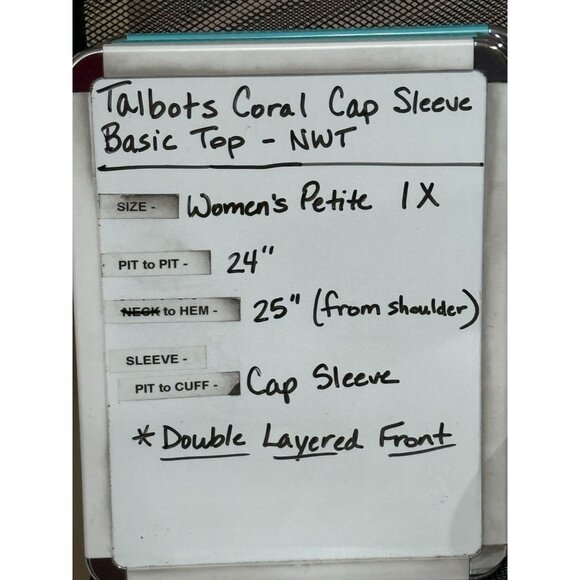 Talbots Coral Cap Sleeve
Basic Top - NWT
SIZE - Women's Petite 1X
PIT to PIT - 24"
NECK to HEM - 25" (from shoulder)
SLEEVE -
PIT to CUFF - Cap Sleeve
* Double Layered Front